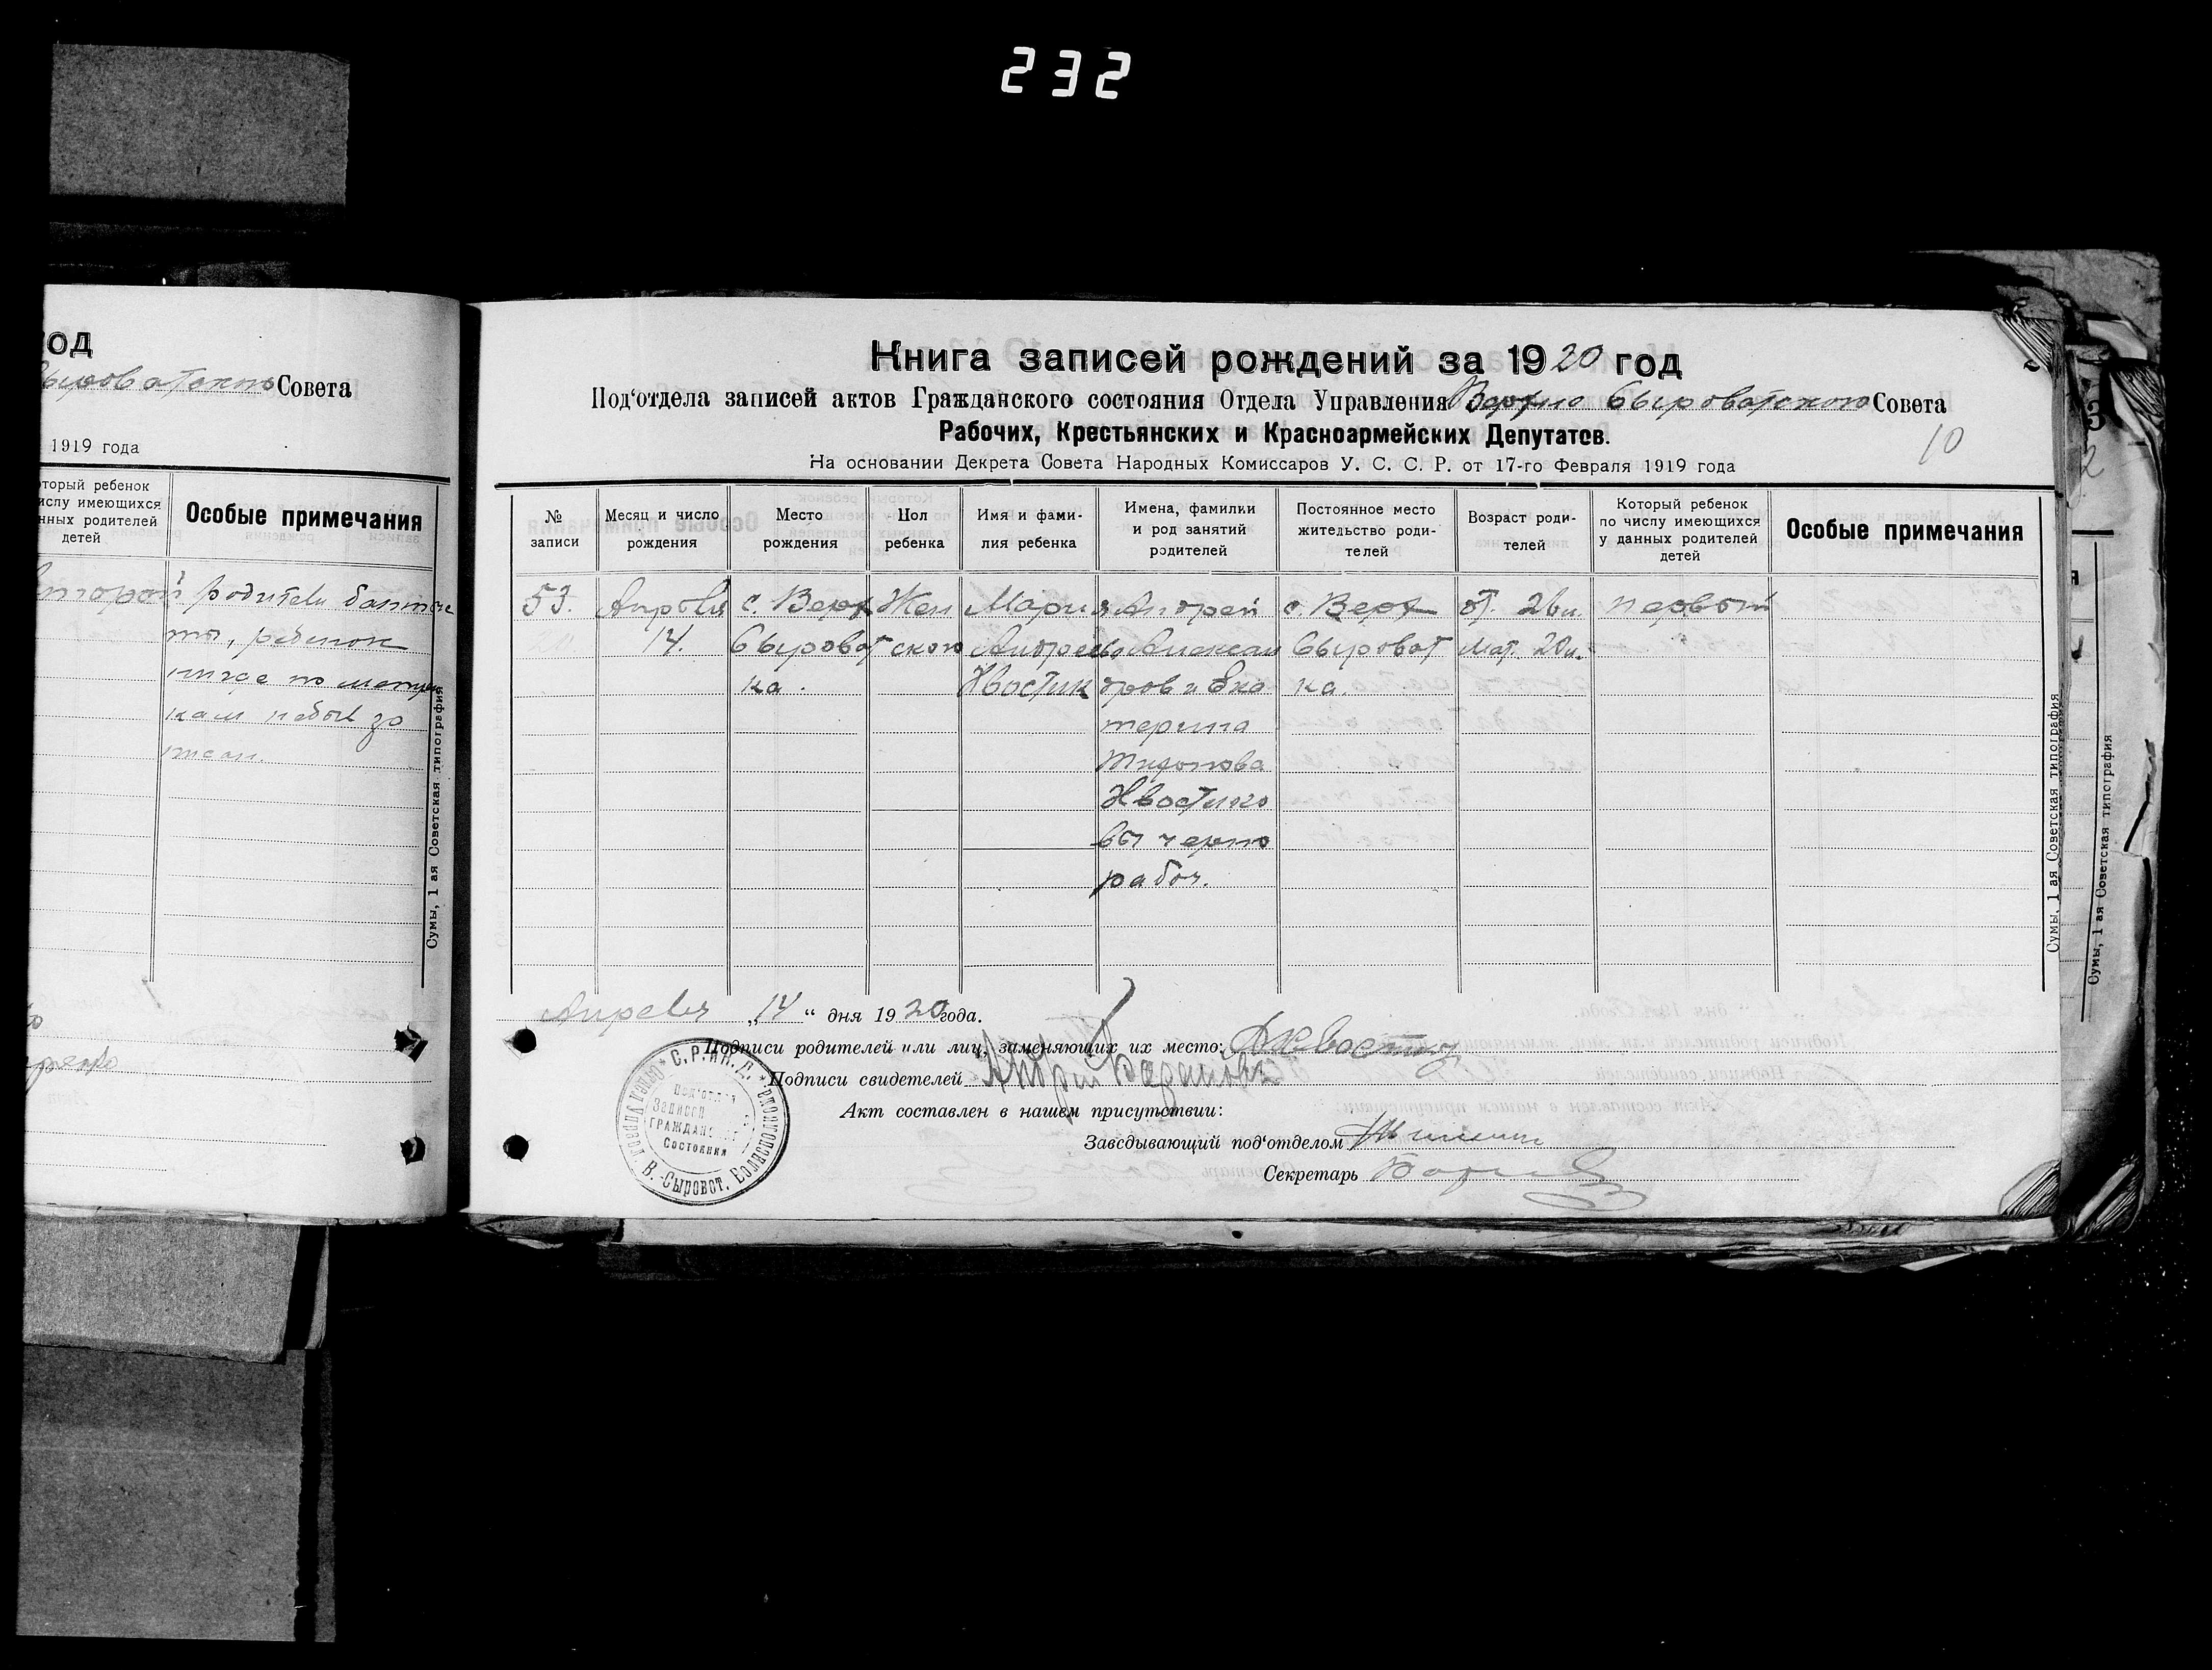 232
од
Сыроватского Совета
1919 года
оторый ребенок
ислу имеющихся
нных родителей
детей
Особые примечания
второй
родители баптис
ты, ребенок
нигде по метри
кам небыл за
писан.
Сумы, 1 ая Советская типография
Книга записей рождений за 1920 год
Под'отдела записей актов Гражданского состояния Отдела Управления Верхно Сыроватского Совета
Рабочих, Крестьянских и Красноармейских Депутатов.
10
На основании Декрета Совета Народных Комиссаров У. С. С. Р. от 17-го Февраля 1919 года
№ записи
Месяц и число рождения
Место рождения
Пол ребенка
Имя и фами-
лия ребенка
Имена, фамилки
и род занятий
родителей
Постоянное место
жительство роди-
телей
Возраст роди-
телей
Который ребенок
по числу имеющихся
у данных родителей
детей
Особые примечания
53.
Апреля
14.
с. Верх
Сыроват
ка.
Жен
ского
Мария
Андреев
Хвостик
Андрей
Алексан
дров и Ека
терина
Тихонова
Хвостико
вы черно
рабоч.
с. Верх
Сыроват
ка.
от. 26 л.
Мат. 20 л.
первый
Апреля „14“ дня 1920 года.
Подписи родителей или лиц, заменяющих их место: А Хвостик
Подписи свидетелей Андрей
Акт составлен в нашем присутствии:
Заведывающий под'отделом
Секретарь
С. Р. и К. Д.
Под'отдел
Записи
Гражданс
Состояния
В.-Сыроват. Волисполкома
Отдел Управл.
Сумы, 1 ая Советская типография
Сумы, 1 ая Советская типография